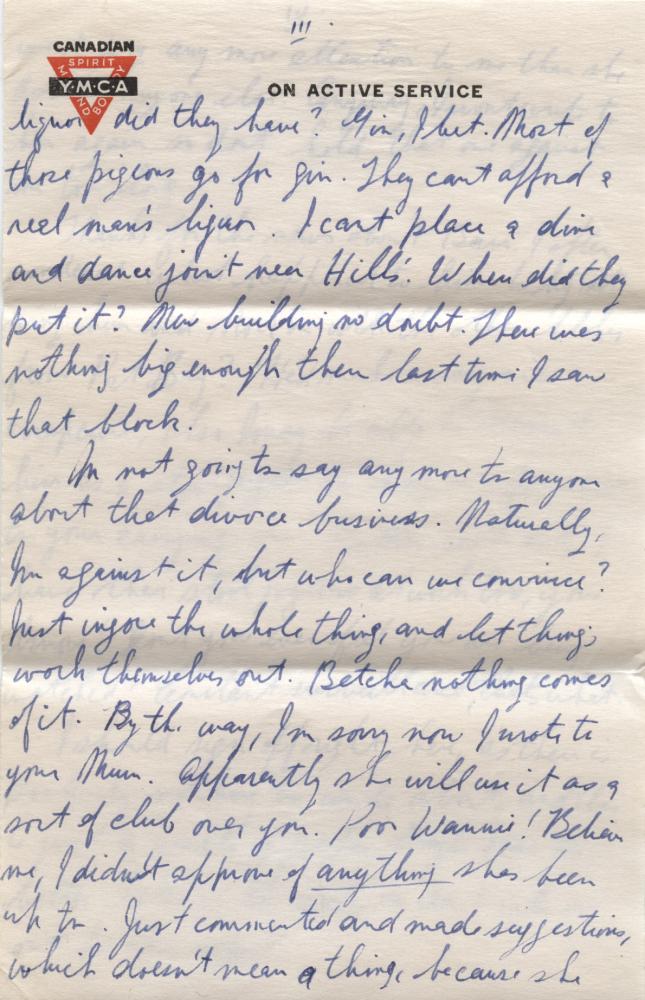 III
CANADIAN
SPIRIT
Y·M·C·A
MIND BODY
ON ACTIVE SERVICE
liquor did they have? Gin, I bet. Most of
those pigeons go for gin. They cant afford a
reel man's liquor. I cant place a dine
and dance joint near Hills'. When did they
put it? New building no doubt. There was
nothing big enough then last time I saw
that block.
Im not going to say any more to anyone
about that divorce business. Naturally,
Im against it, but who can we convince?
Just ingore the whole thing, and let things
work themselves out. Betcha nothing comes
of it. By the way, I'm sorry now I wrote to
your Mum. Apparently she will use it as a
sort of club over you. Poor Wannie! Believe
me, I didn't approve of anything shes been
up to. Just commented and made suggestions,
which doesn't mean a thing, because she